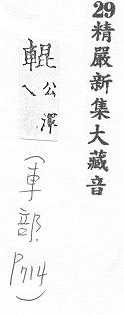 29精嚴新集大藏音
輥
公渾
(車部. P714)